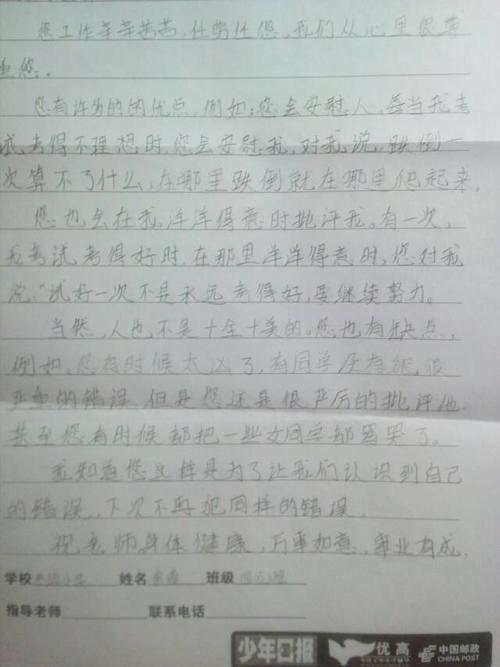 您工作辛辛苦苦,任劳任怨,我们从心里很尊
重您。
您有许多的的优点,例如:您会安慰人,每当我考
试,考得不理想时,您会安慰我,对我说,跌倒一
次算不了什么,在哪里跌倒就在哪里爬起来。
您也会在我洋洋得意时批评我。有一次,
我考试考得好时,在那里洋洋得意时,您对我
说:"试好一次不是永远考得好,要继续努力。
当然,人也不是十全十美的。您也有缺点,
例如,您有时候太凶了,有同学没有
严重的错误,但是您还是很严厉的批评他
甚至您有时候都把一些女同学都骂哭了。
我知道您这样是为了让我们认识到自己
的错误,下次不再犯同样的错误。
祝老师身体健康,万事如意,事业有成。
学校 姓名 班级
指导老师 联系电话
少年日报 优高 中国邮政 CHINA POST